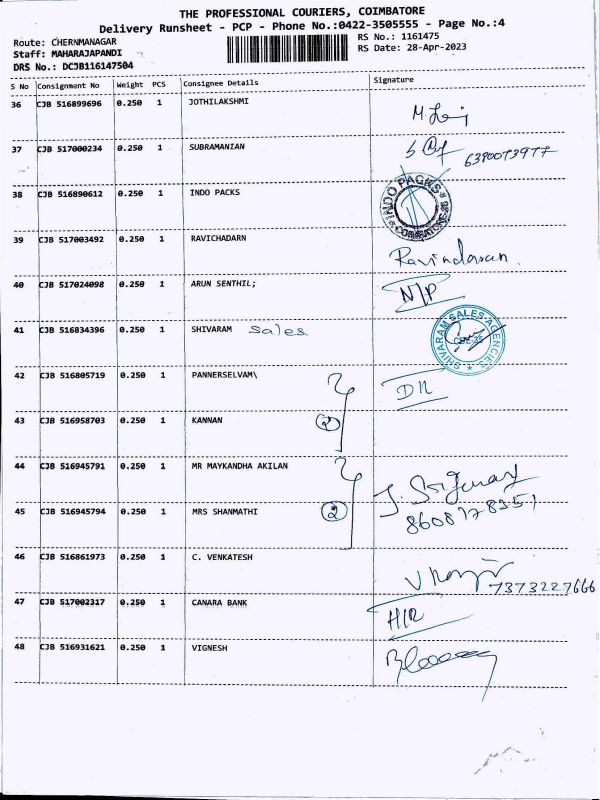 THE PROFESSIONAL COURIERS, COIMBATORE
Delivery Runsheet - PCP - Phone No.:0422-3505555 - Page No.:4
Route: CHERNMANAGAR
RS No.: 1161475
Staff: MAHARAJAPANDI
RS Date: 28-Apr-2023
DRS No.: DCJB116147504
S No Consignment No Weight PCS Consignee Details Signature
36 CJB 516899696 0.250 1 JOTHILAKSHMI
37 CJB 517000234 0.250 1 SUBRAMANIAN 6390073977
38 CJB 516890612 0.250 1 INDO PACKS INDO PACKS COIMBATORE
39 CJB 517003492 0.250 1 RAVICHADARN Ravindaran.
40 CJB 517024098 0.250 1 ARUN SENTHIL; N/P
41 CJB 516834396 0.250 1 SHIVARAM Sales. SHIVARAM SALES AGENCIES
42 CJB 516805719 0.250 1 PANNERSELVAM\ DR
43 CJB 516958703 0.250 1 KANNAN 2
44 CJB 516945791 0.250 1 MR MAYKANDHA AKILAN
45 CJB 516945794 0.250 1 MRS SHANMATHI 2 8608178351
46 CJB 516861973 0.250 1 C. VENKATESH 7373227666
47 CJB 517002317 0.250 1 CANARA BANK H/R
48 CJB 516931621 0.250 1 VIGNESH